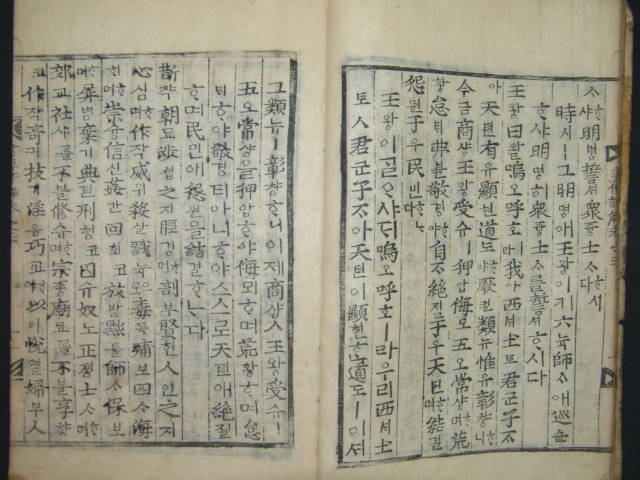 ᄉᆞᄒᆞ샤明명誓셔衆즁士ᄉᆞ다
時시ㅣ그明명애王왕이기六뉵師ᄉᆞ애巡슌
ᄒᆞ샤明명히衆즁士ᄉᆞᄅᆞᆯ誓셔ᄒᆞ시다
王왕曰왈嗚오呼호ㅣ라我아西셔土토君군子ᄌᆞ
아天텬有유顯현道도ᄒᆞ야厥궐類뉴惟유彰챵ᄒᆞ니
今금商샹王왕受슈ㅣ狎압侮모五오常샹ᄒᆞ며荒
황怠ᄐᆡ弗블敬경ᄒᆞ야自ᄌᆞ絶졀于우天텬ᄒᆞ며結결
怨원于우民민ᄒᆞᄂᆞ다
王왕이ᄀᆞᆯᄋᆞ샤ᄃᆡ嗚오呼호ㅣ라우리西셔土
토人君군子ᄌᆞ아天텬이顯현ᄒᆞᆫ道도ㅣ이셔
그類뉴ㅣ彰챵ᄒᆞ니이제商샹人王왕受슈ㅣ
五오常샹을狎압ᄒᆞ야侮모ᄒᆞ며荒황ᄒᆞ며怠
ᄐᆡᄒᆞ야敬경티아니ᄒᆞ야스스로天텬애絶졀
ᄒᆞ며民민애怨원을結결ᄒᆞᄂᆞ다
斮쟉朝됴涉셥之지脛경ᄒᆞ며剖부賢현人인之지
心심ᄒᆞ며作작威위殺살戮뉵으로毒독痡보四ᄉᆞ海
ᄒᆡᄒᆞ며崇슝信신姦간回회ᄒᆞ고放방黜튤師ᄉᆞ保보
ᄒᆞ며屛병棄기典뎐刑형ᄒᆞ고囚슈奴노正졍士ᄉᆞᄒᆞ며
郊교社샤ᄅᆞᆯ不블修슈ᄒᆞ며宗종廟묘ᄅᆞᆯ不블享향
ᄒᆞ고作작奇긔技기淫음巧교ᄒᆞ야以이悅열婦부人